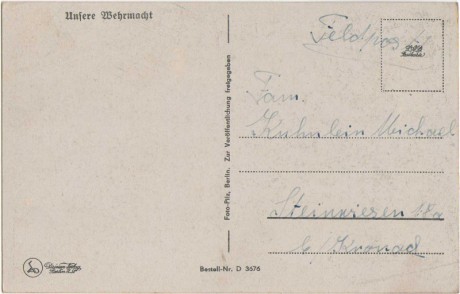 Unsere Wehrmacht
Feldpost
Fam.
Kuhnlein Michael
Steinwiesen
b/ Kronach
Foto-Pilz, Berlin. Zur Veröffentlichung freigegeben
Bestell-Nr. D 3676